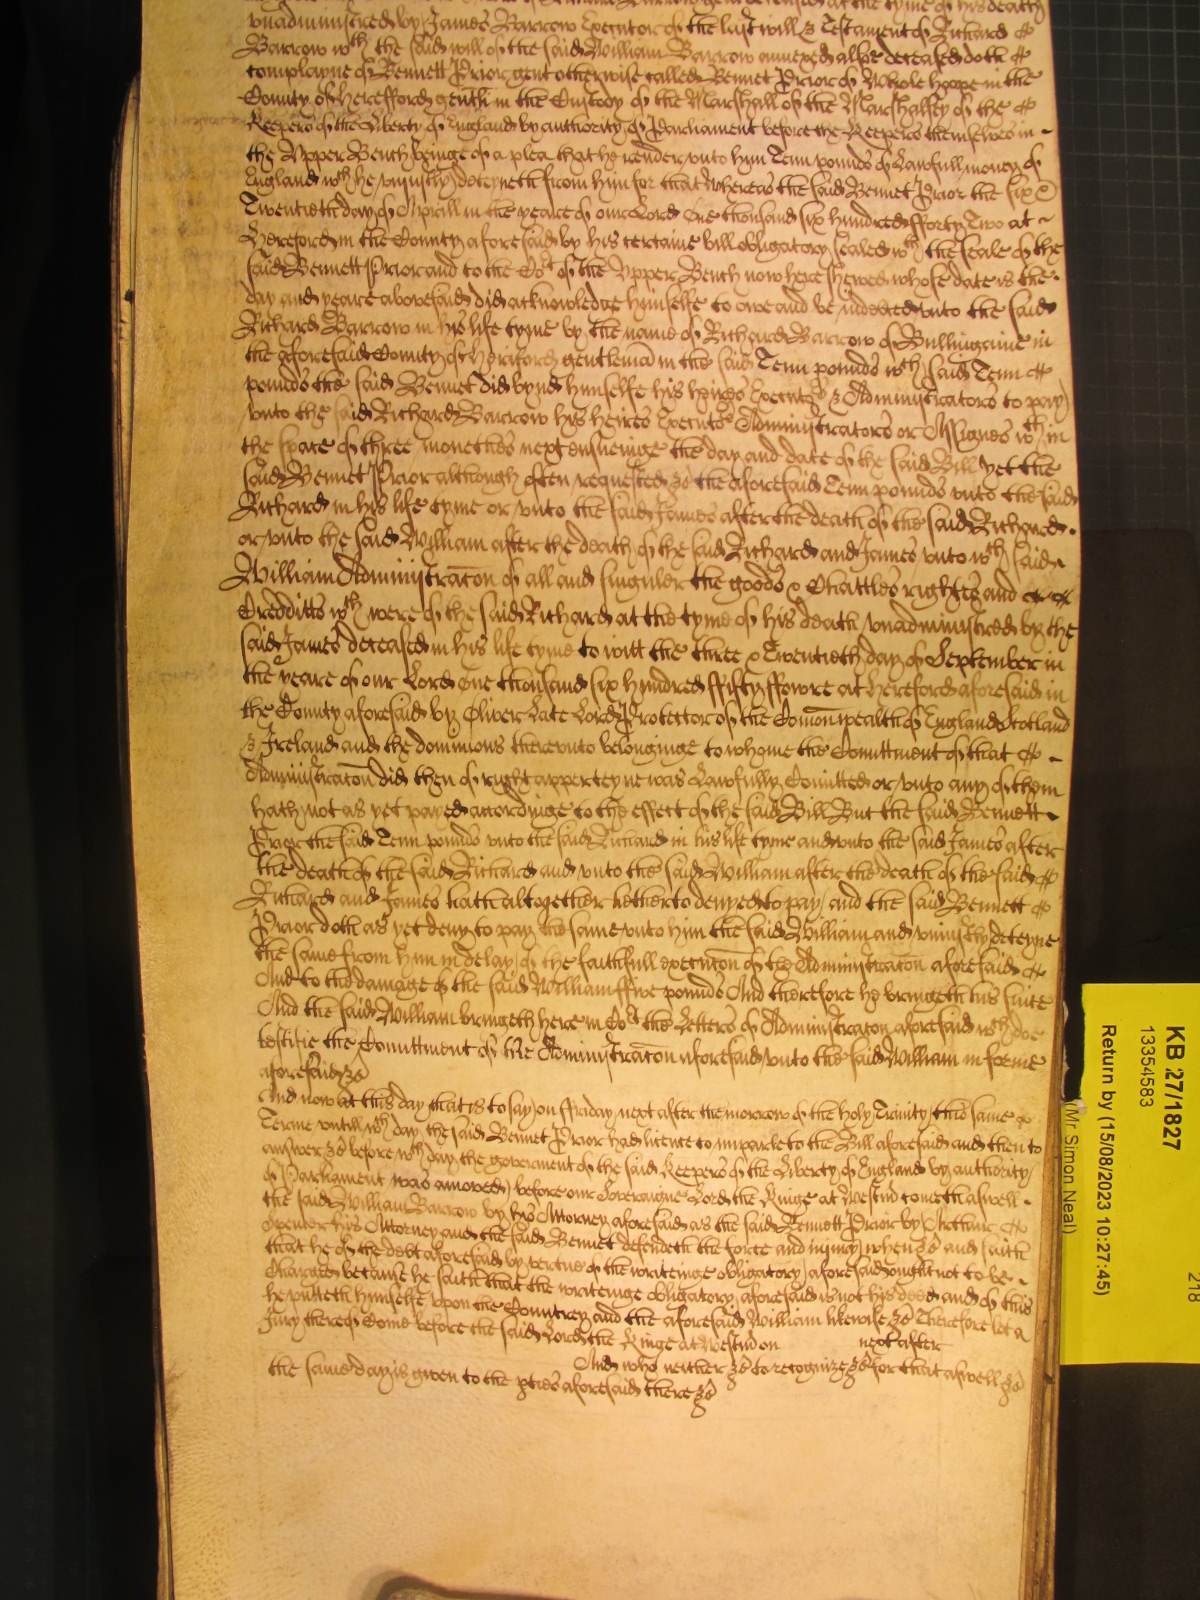 Barrow gent deceased at the tyme of his death
vnadministred by James Barrow Executor of the last will & Testament of Richard
Barrow wth the said will of the said William Barrow annexed alsoe deceased doth
complayne of Bennett Prior gent otherwise called Bennet Prior of Whole hoope in the
County of Herefford gentl in the Custody of the Marshall of the Marshalsey of the
Keepers of the Liberty of England by authority of Parliament before the Keepers themselves in
the Vpper Bench beinge of a plea that he render vnto him Tenn pounds of Lawfull money of
England wch he vniustly deteyneth from him for that Whereas the said Bennet Prior the six &
Twentieth day of Aprill in the yeare of our Lord One thousand six hundred fforty Two at
Hereford in the County aforesaid by his certaine bill obligatory sealed wth the seale of the
said Bennett Prior and to the Cort of the Vpper Bench now here shewed whose date is the
day and yeare abovesaid did acknowledge himselfe to owe and be indebted vnto the said
Richard Barrow in his life tyme by the name of Richard Barrow of Bullingaine in
the aforesaid County of Heriford gentleman in the said Tenn pounds wch said Tenn
pounds the said Bennet did bynd himselfe his heires Executors & Administrators to pay
vnto the said Richard Barrow his heires Executors Administrators or Assignes wthin
the space of three monethes next ensueinge the day and date of the said Bill yet the
said Bennet Prior although often requested &c the aforesaid Tenn pounds vnto the said
Richard in his life tyme or vnto the said James after the death of the said Richard
or vnto the said William after the death of the said Richard and James vnto wch said
William Administracon of all and singuler the goods & Chattles rightes and
Credditts wch were of the said Richard at the tyme of his death vnadministred by the
said James deceased in his life tyme to witt the three & Twentieth day of September in
the yeare of our Lord One thousand six hundred ffifty ffowre at Hereford aforesaid in
the County aforesaid by Oliver Late Lord Protector of the Comonwealth of England Scotland
& Ireland and the dominions therevnto belonginge to whome the Comittment of that
Administracon did then of right apperteyne was Lawfully Comitted or vnto any of them
hath not as yet payed accordinge to the effect of the said Bill But the said Bennett
Prior the said Tenn pounds vnto the said Richard in his life tyme and vnto the said James after
the death of the said Richard and vnto the said William after the death of the said
Richard and James hath altogether hitherto denyed to pay and the said Bennett
Prior doth as yet deny to pay the same vnto him the said William and vniustly deteyne
the same from him in delay of the faithfull execucon of the Administracon aforesaid
And to the damage of the said William ffive pounds And therefore he bringeth his suite
And the said William bringeth here in Cort the Letters of Administracon aforesaid wch doe
testifie the Comittment of the Administracon aforesaid vnto the said William in forme
aforesaid &c
And now at this day that is to say on ffriday next after the morrow of the holy Trinity the same
Terme vntill wch day the said Bennet Prior had licence to imparle to the Bill aforesaid and then to
answer &c before wch day the goverment of the said Keepers of the Liberty of England by authority
of Parliament was amoved) before our Soveraigne Lord the Kinge at Westm cometh aswell
the said William Barrow by his Attorney aforesaid as the said Bennett Prior by Arthur
Spencer his Attorney and the said Bennet defendeth the force and iniury when &c and saith
that he of the debt aforesaid by vertue of the writeinge obligatory aforesaid ought not to be
Charged because he saith that the writeinge obligatory aforesaid is not his deed and of this
he putteth himselfe vpon the Countrey and the aforesaid William likewise &c Therefore let a
Jury thereof Come before the said Lord the Kinge at Westm on next after
And who neither &c to recognize &c for that aswell &c
the same day is given to the pties aforesaid there &c
KB 27/1827
13354583
Return by (15/08/2023 10:27:45)
(Mr Simon Neal)
218